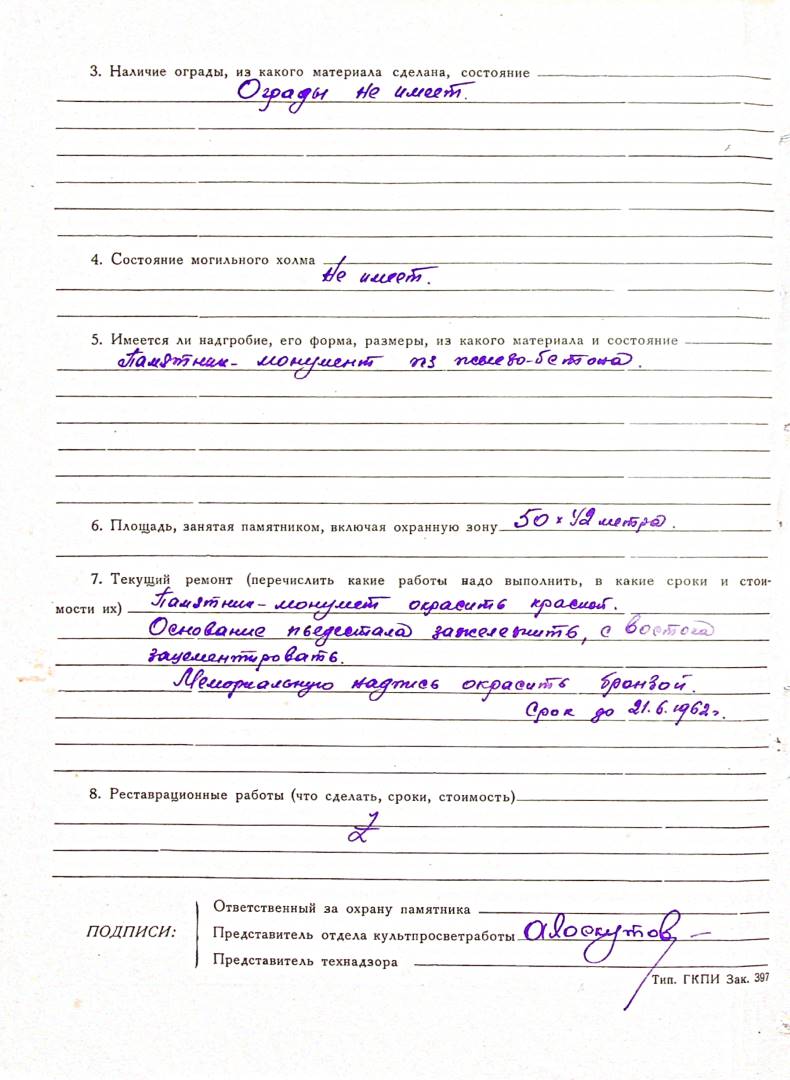 3. Наличие ограды, из какого материала сделана, состояние
Ограды не имеет.
4. Состояние могильного холма
Не имеет.
5. Имеется ли надгробие, его форма, размеры, из какого материала и состояние
Памятник-монумент из железо-бетона.
6. Площадь, занятая памятником, включая охранную зону 50 × 42 метра.
7. Текущий ремонт (перечислить какие работы надо выполнить, в какие сроки и стои-
мости их) Памятник-монумет окрасить краской.
Основание пьедестала зажелезнить, с востока
зацементировать.
Мемориальную надпись окрасить бронзой.
Срок до 21.6.1962г.
8. Реставрационные работы (что сделать, сроки, стоимость)
ПОДПИСИ:
Ответственный за охрану памятника
Представитель отдела культпросветработы АЛоскутов
Представитель технадзора
Тип. ГКПИ Зак. 397